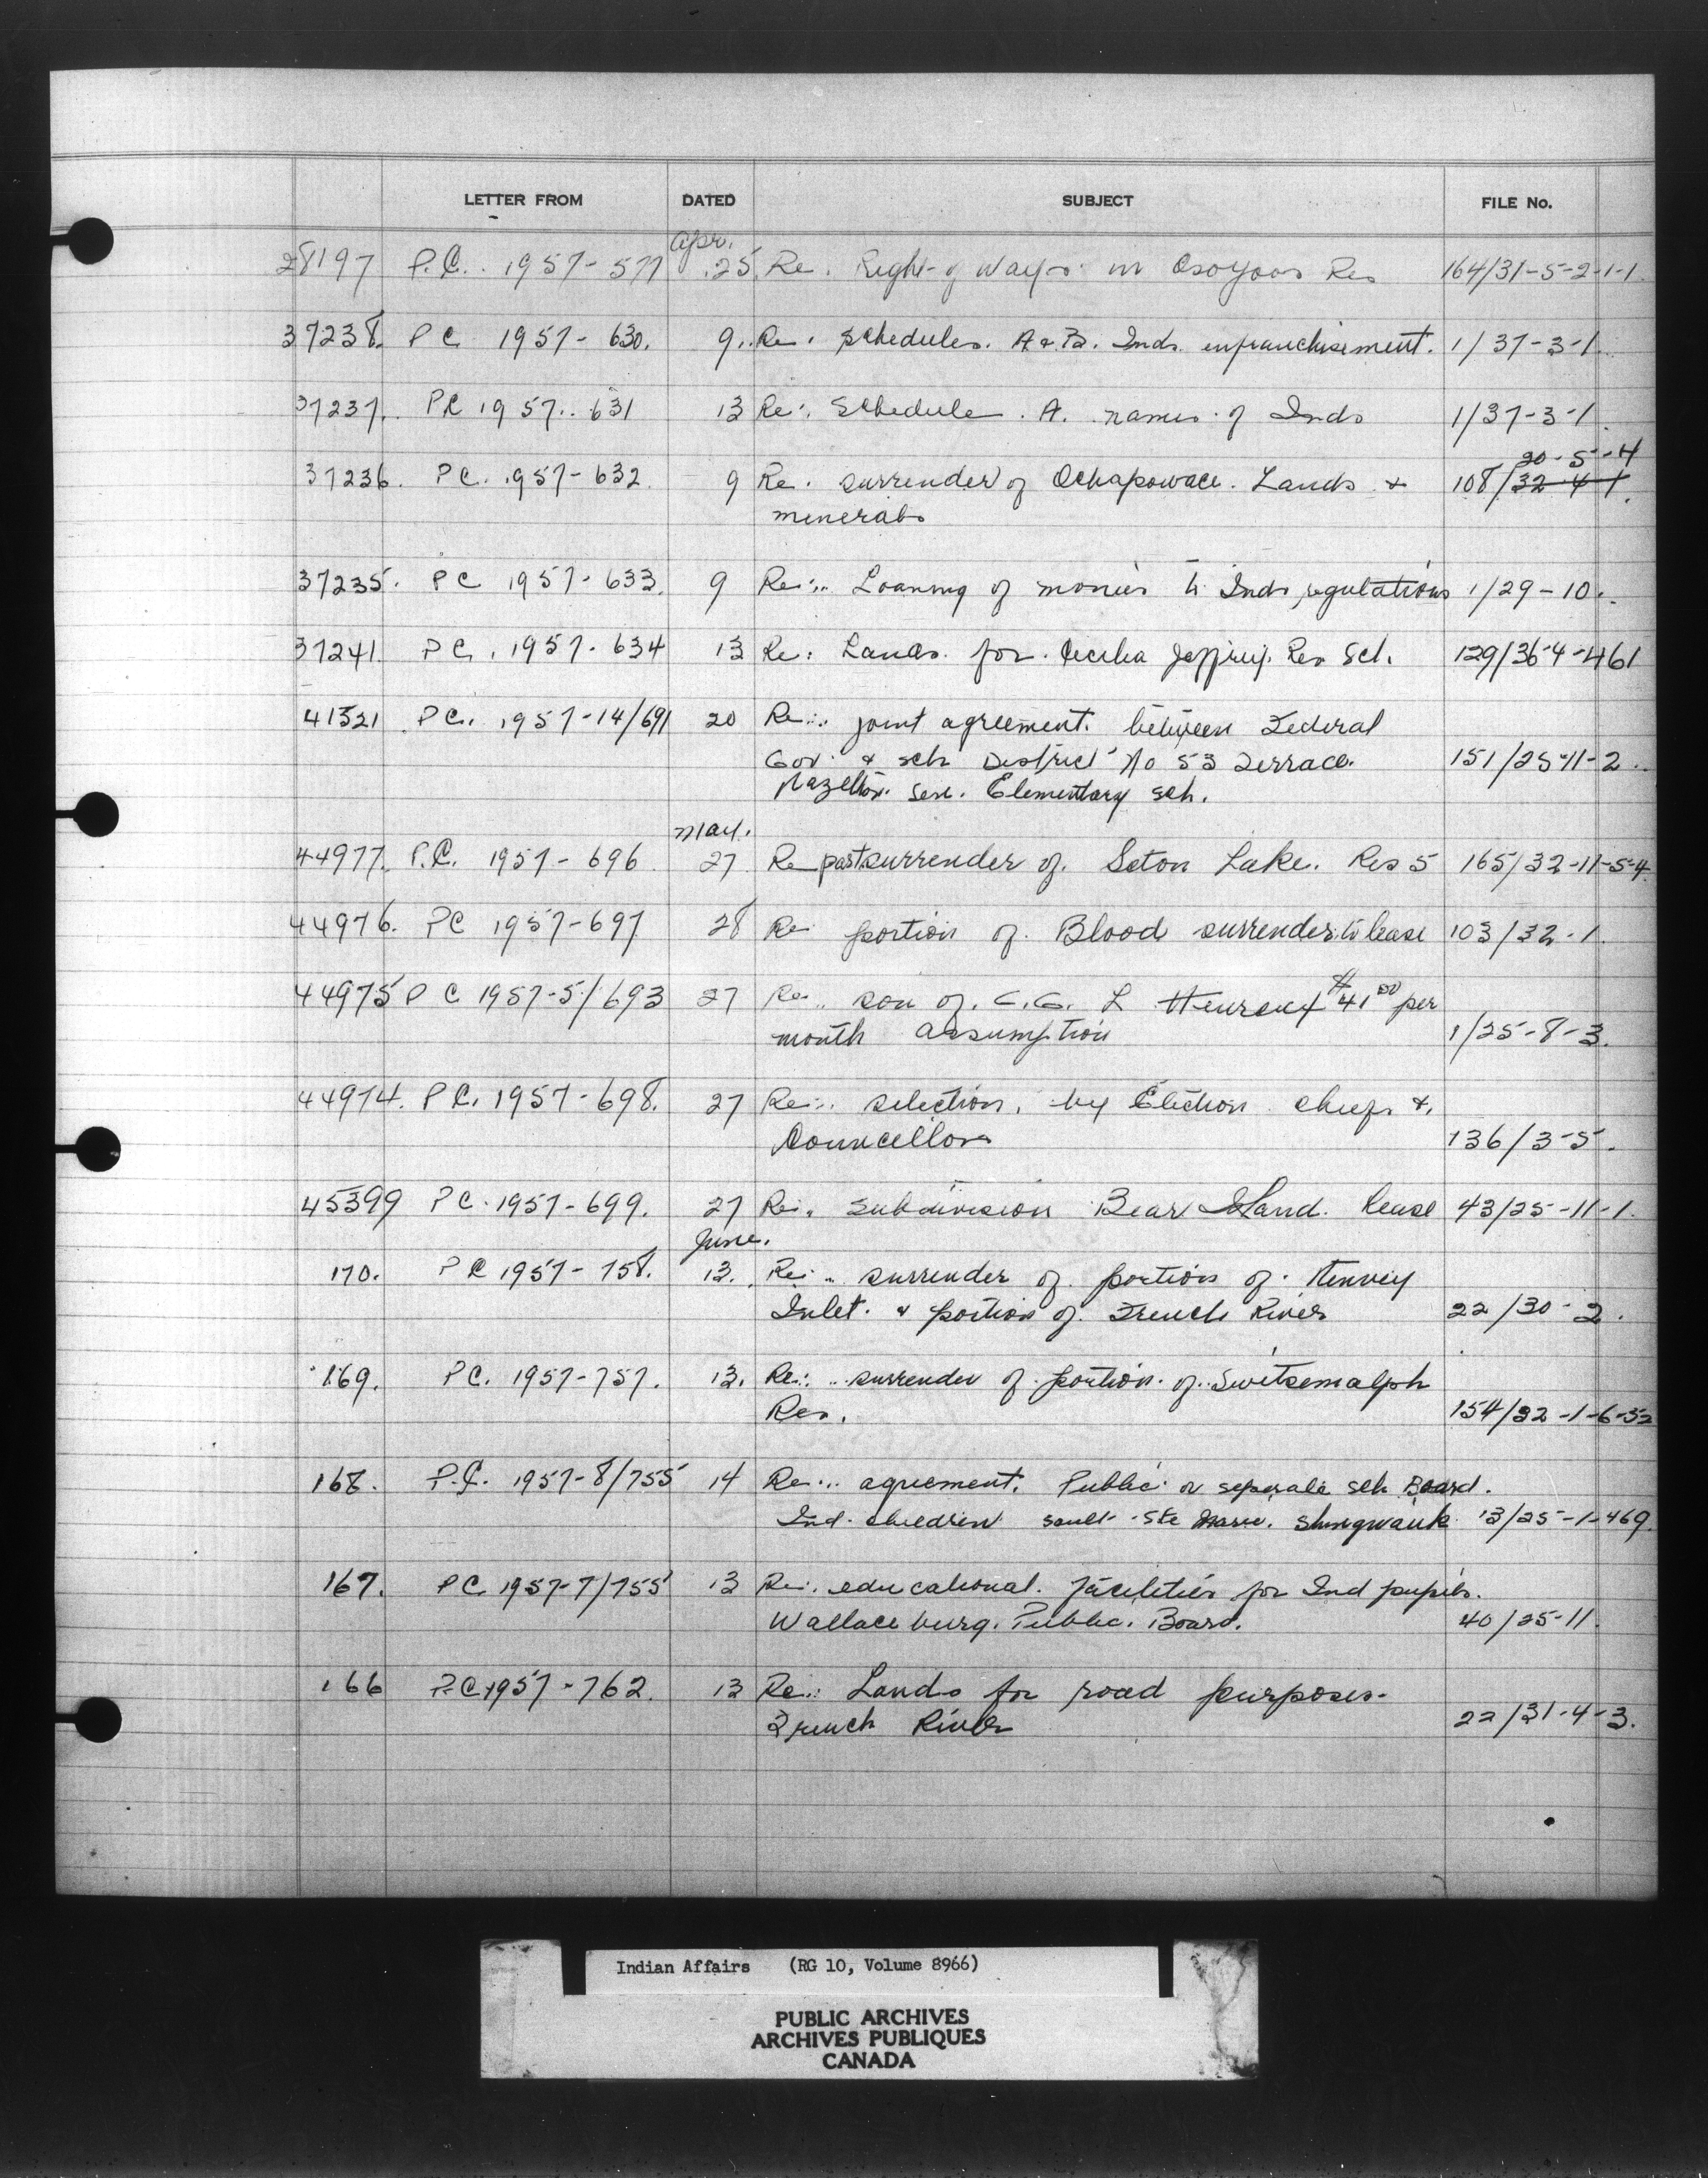 LETTER FROM DATED SUBJECT FILE No.
Apr.
28197 P.C. 1957-577 25 Re. Right of Ways in Osoyoos Res 164/31-5-2-1-1
37238. PC 1957-630. 9. Re. Schedules. A & B. Inds. enfranchisement. 1/37-3-1.
37237. PC 1957. 631 13 Re. Schedule. A. names of Inds 1/37-3-1.
20-5-4
37236. PC. 1957-632. 9 Re. surrender of Ochapowace. Lands & 108/32-4-1.
minerals
37235. PC 1957-633. 9 Re: Loaning of monies to Inds regulations 1/29-10.
37241. PC. 1957-634 13 Re: Lands for Cecilia Jeffrey. Res Sch. 129/36-4-461
41321 PC. 1957-14/691 20 Re: joint agreement. between Federal
Gov. & sch District No 53 Terrace. 151/25-11-2.
Hazelton. Elementary sch.
May.
44977. P.C. 1957-696 27 Re part surrender of Seton Lake. Res 5 165/32-11-5-4.
44976. PC 1957-697 28 Re portion of Blood surrender to lease 103/32-1.
44975 P C 1957-5/693 27 Re. son of C.G. L $41.00 per
month Assumption 1/25-8-3.
44974. PC. 1957-698. 27 Re: selection, by Election chiefs &
Councellors 136/3-5.
45399 PC. 1957-699. 27 Re. subdivision Bear Island. lease 43/25-11-1.
June.
170. PC 1957-758. 13. Re: surrender of portion of Henvey
Inlet. & portion of French River 22/30-2.
169. PC. 1957-757. 13. Re: surrender of portion of Switsemalph
Res. 154/32-1-6-32
168. P.C. 1957-8/755 14 Re: agreement. Public or seperate sch Board.
Ind. children sault Ste Marie. Shingwauk 13/25-1-469.
167. PC 1957-7/755 13 Re. educational. facilities for Ind pupils.
Wallaceburg. Public. Board. 40/25-11.
166 P.C 1957-762. 13 Re: Lands for road purposes-
French River 22/31-4-3.
Indian Affairs (RG 10, Volume 8966)
PUBLIC ARCHIVES
ARCHIVES PUBLIQUES
CANADA